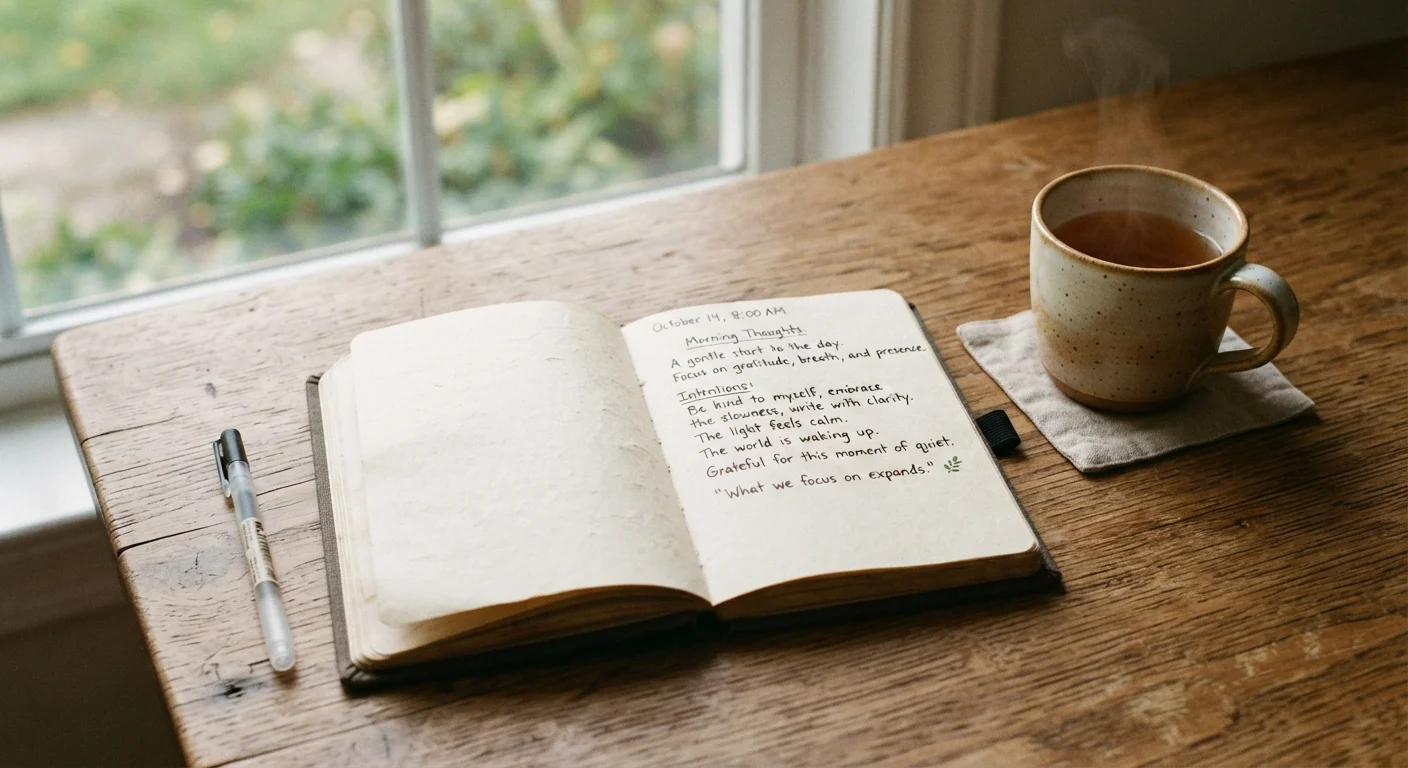 October 14, 8:00 AM
Morning Thoughts
A gentle start to the day.
Focus on gratitude, breath, and presence
Intentions:
Be kind to myself, embrace
the slowness, write with clarity.
The light feels calm.
The world is waking up.
Grateful for this moment of quiet.
"What we focus on expands."